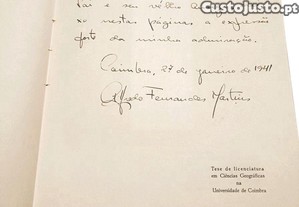 Custojusto.pt
tar e seu velho
xo nestas páginas a expressão
forte da minha admiração.
Coimbra, 27 de janeiro de 1941
Alfredo Fernandes Martins
Tese de licenciatura
em Ciências Geográficas
na
Universidade de Coimbra